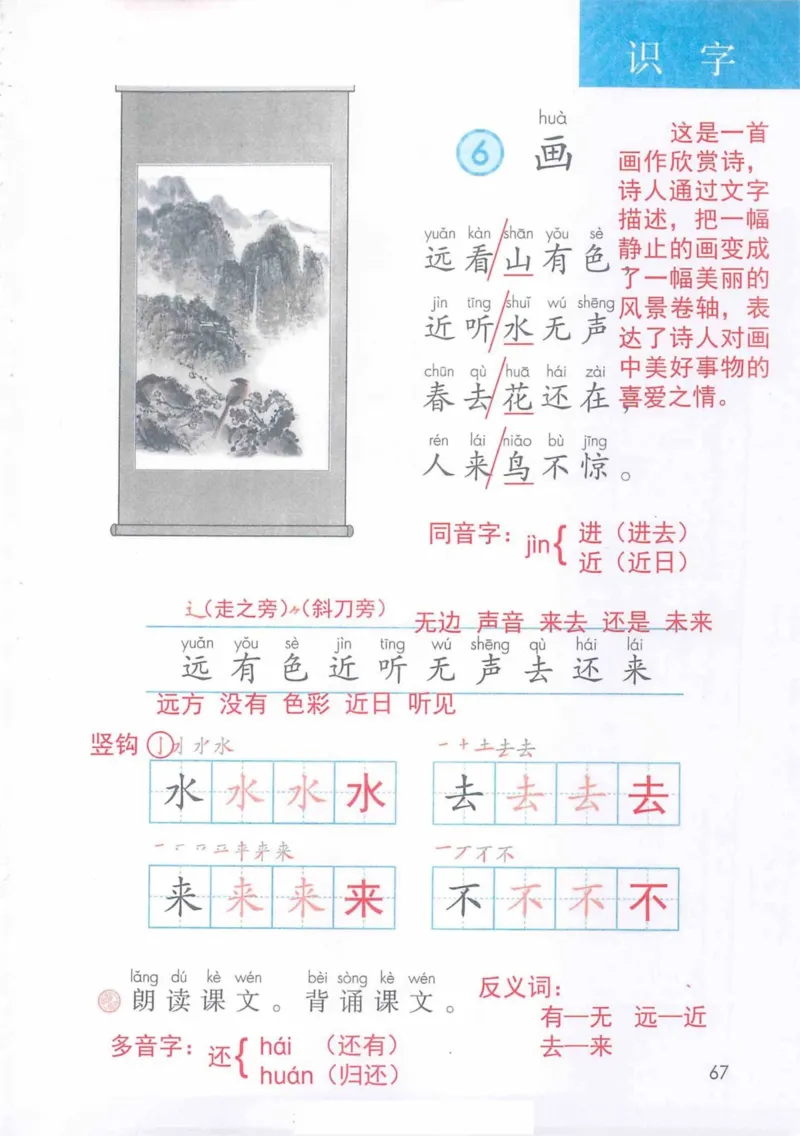 识字
huà
6 画
这是一首
画作欣赏诗，
诗人通过文字
描述，把一幅
静止的画变成
了一幅美丽的
风景卷轴，表
达了诗人对画
中美好事物的
喜爱之情。
yuǎn kàn shān yǒu sè
远看/山有色，
jìn tīng shuǐ wú shēng
近听/水无声
chūn qù huā hái zài
春去/花还在，
rén lái niǎo bù jīng
人来/鸟不惊。
同音字：jìn{ 进（进去）
近（近日）
辶（走之旁）（斜刀旁）
无边 声音 来去 还是 未来
yuǎn yǒu sè jìn tīng wú shēng qù hái lái
远有色近听无声去还来
远方 没有 色彩 近日 听见
竖钩 亅 水 水
一 十 土 去 去
水 水 水 水 去 去 去 去
来 来
一 丆 不 不
来 来 来 来 不 不 不 不
lǎng dú kè wén bèi sòng kè wén
朗读课文。背诵课文。
反义词：
有—无 远—近
去—来
多音字：还{ hái （还有）
huán（归还）
67